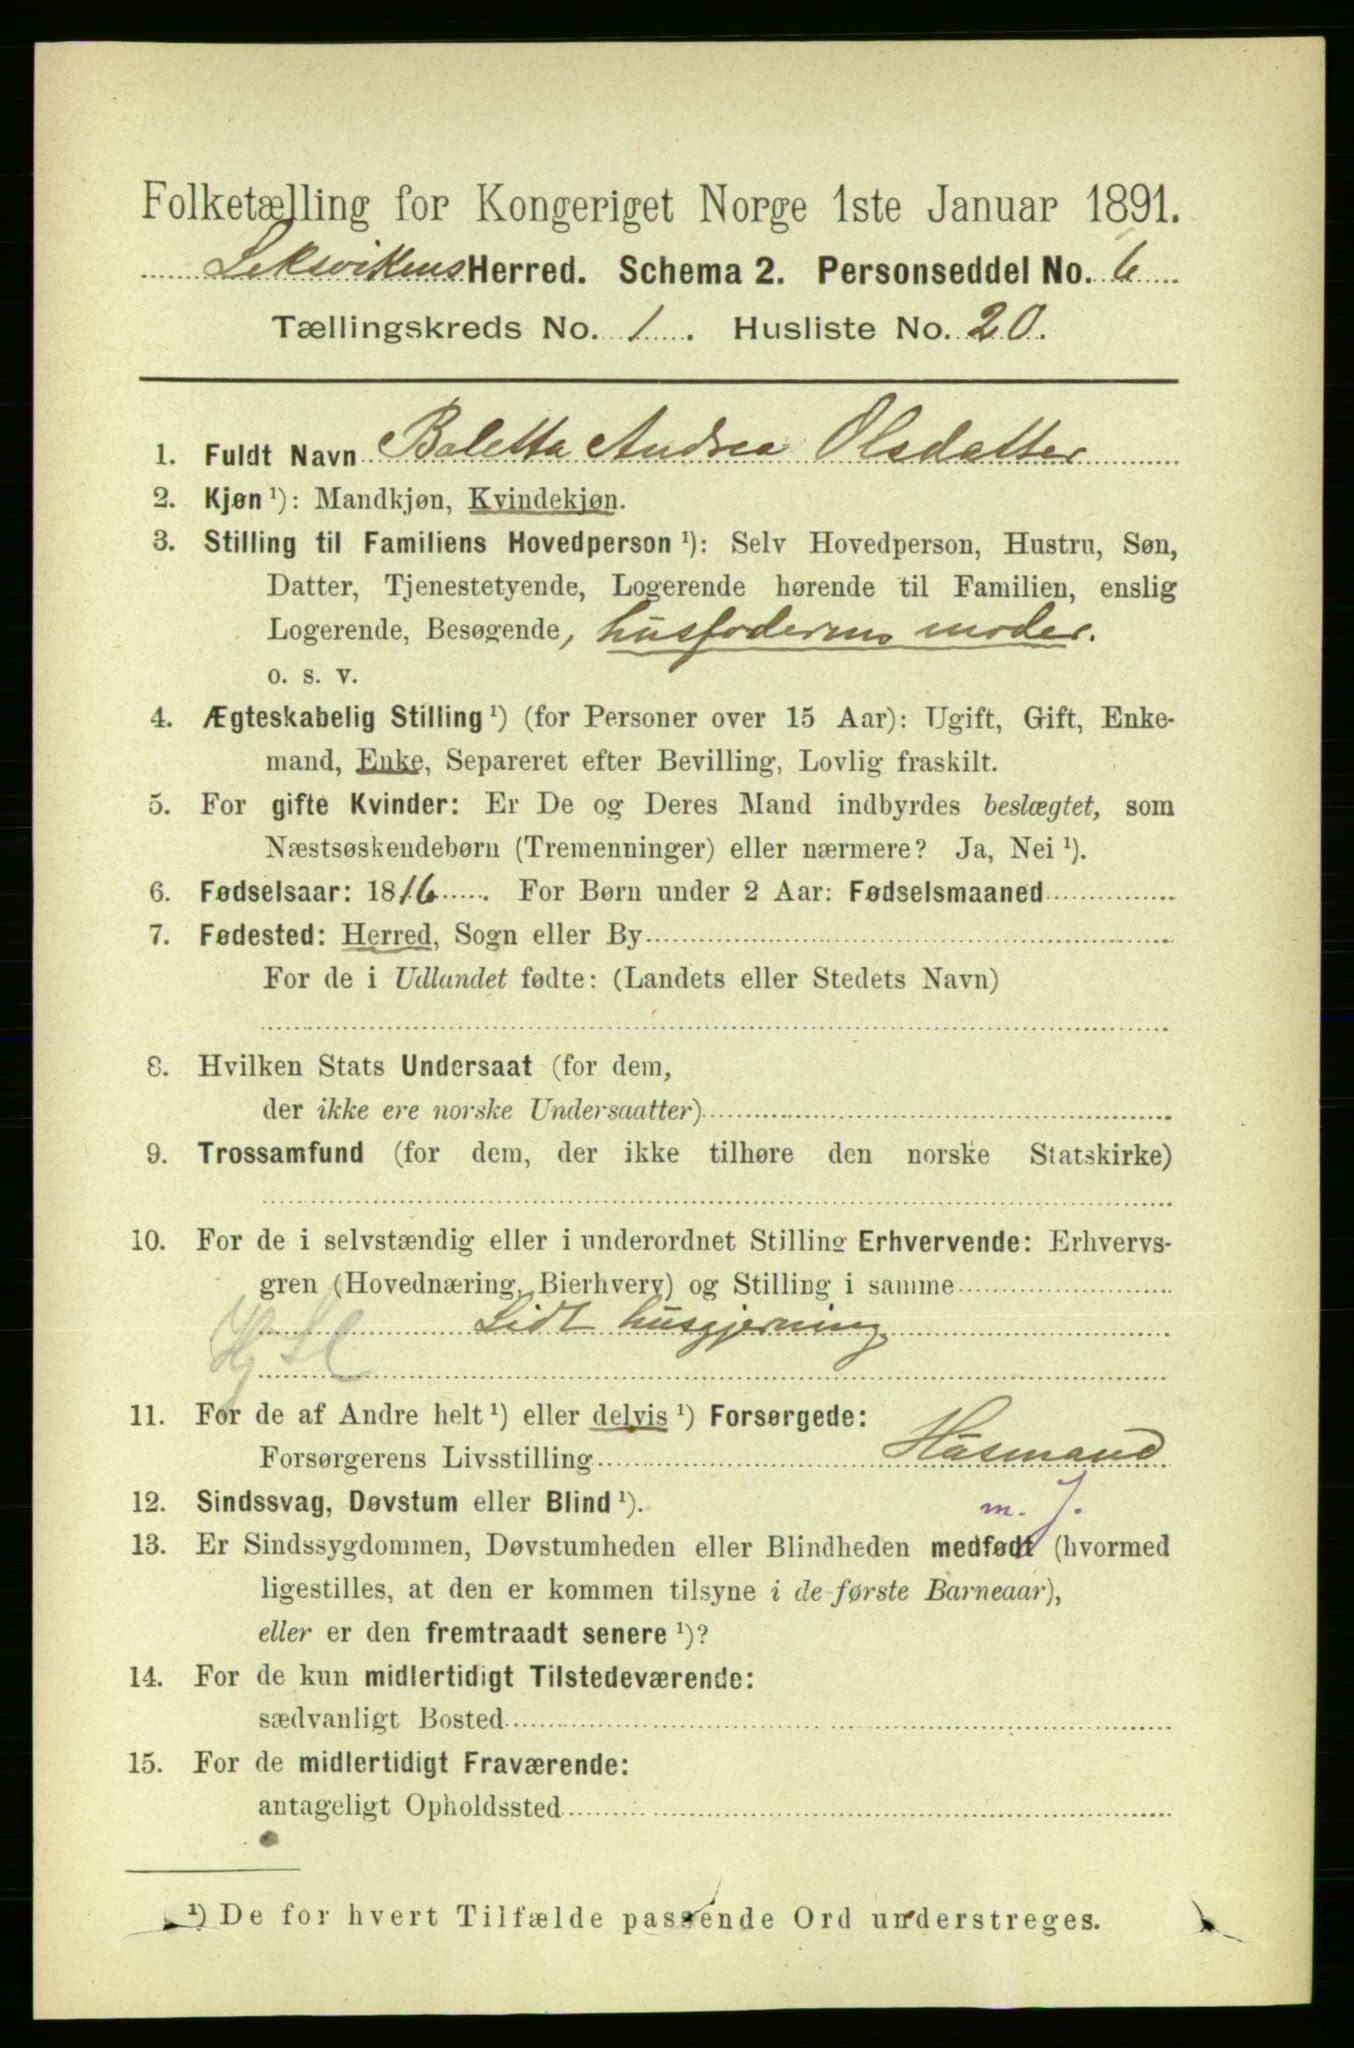 Folketælling for Kongeriget Norge 1ste Januar 1891.
Leksvikens Herred. Schema 2. Personseddel No. 6
Tællingskreds No. 1. Husliste No. 20.
1. Fuldt Navn Boletta Andrea Olsdatter
2. Kjøn ¹): Mandkjøn, Kvindekjøn.
3. Stilling til Familiens Hovedperson ¹): Selv Hovedperson, Hustru, Søn,
Datter, Tjenestetyende, Logerende hørende til Familien, enslig
Logerende, Besøgende, husfaderens moder.
o. s. v.
4. Ægteskabelig Stilling ¹) (for Personer over 15 Aar): Ugift, Gift, Enke-
mand, Enke, Separeret efter Bevilling, Lovlig fraskilt.
5. For gifte Kvinder: Er De og Deres Mand indbyrdes beslægtet, som
Næstsøskendebørn (Tremenninger) eller nærmere? Ja, Nei ¹).
6. Fødselsaar: 1816. For Børn under 2 Aar: Fødselsmaaned
7. Fødested: Herred, Sogn eller By
For de i Udlandet fødte: (Landets eller Stedets Navn)
8. Hvilken Stats Undersaat (for dem,
der ikke ere norske Undersaatter)
9. Trossamfund (for dem, der ikke tilhøre den norske Statskirke)
10. For de i selvstændig eller i underordnet Stilling Erhvervende: Erhvervs-
gren (Hovednæring, Bierhverv) og Stilling i samme
Lidt husgjerning
11. For de af Andre helt ¹) eller delvis ¹) Forsørgede:
Forsørgerens Livsstilling Husmand
12. Sindssvag, Døvstum eller Blind ¹). m. J.
13. Er Sindssygdommen, Døvstumheden eller Blindheden medfødt (hvormed
ligestilles, at den er kommen tilsyne i de første Barneaar),
eller er den fremtraadt senere ¹)?
14. For de kun midlertidigt Tilstedeværende:
sædvanligt Bosted
15. For de midlertidigt Fraværende:
antageligt Opholdssted
¹) De for hvert Tilfælde passende Ord understreges.